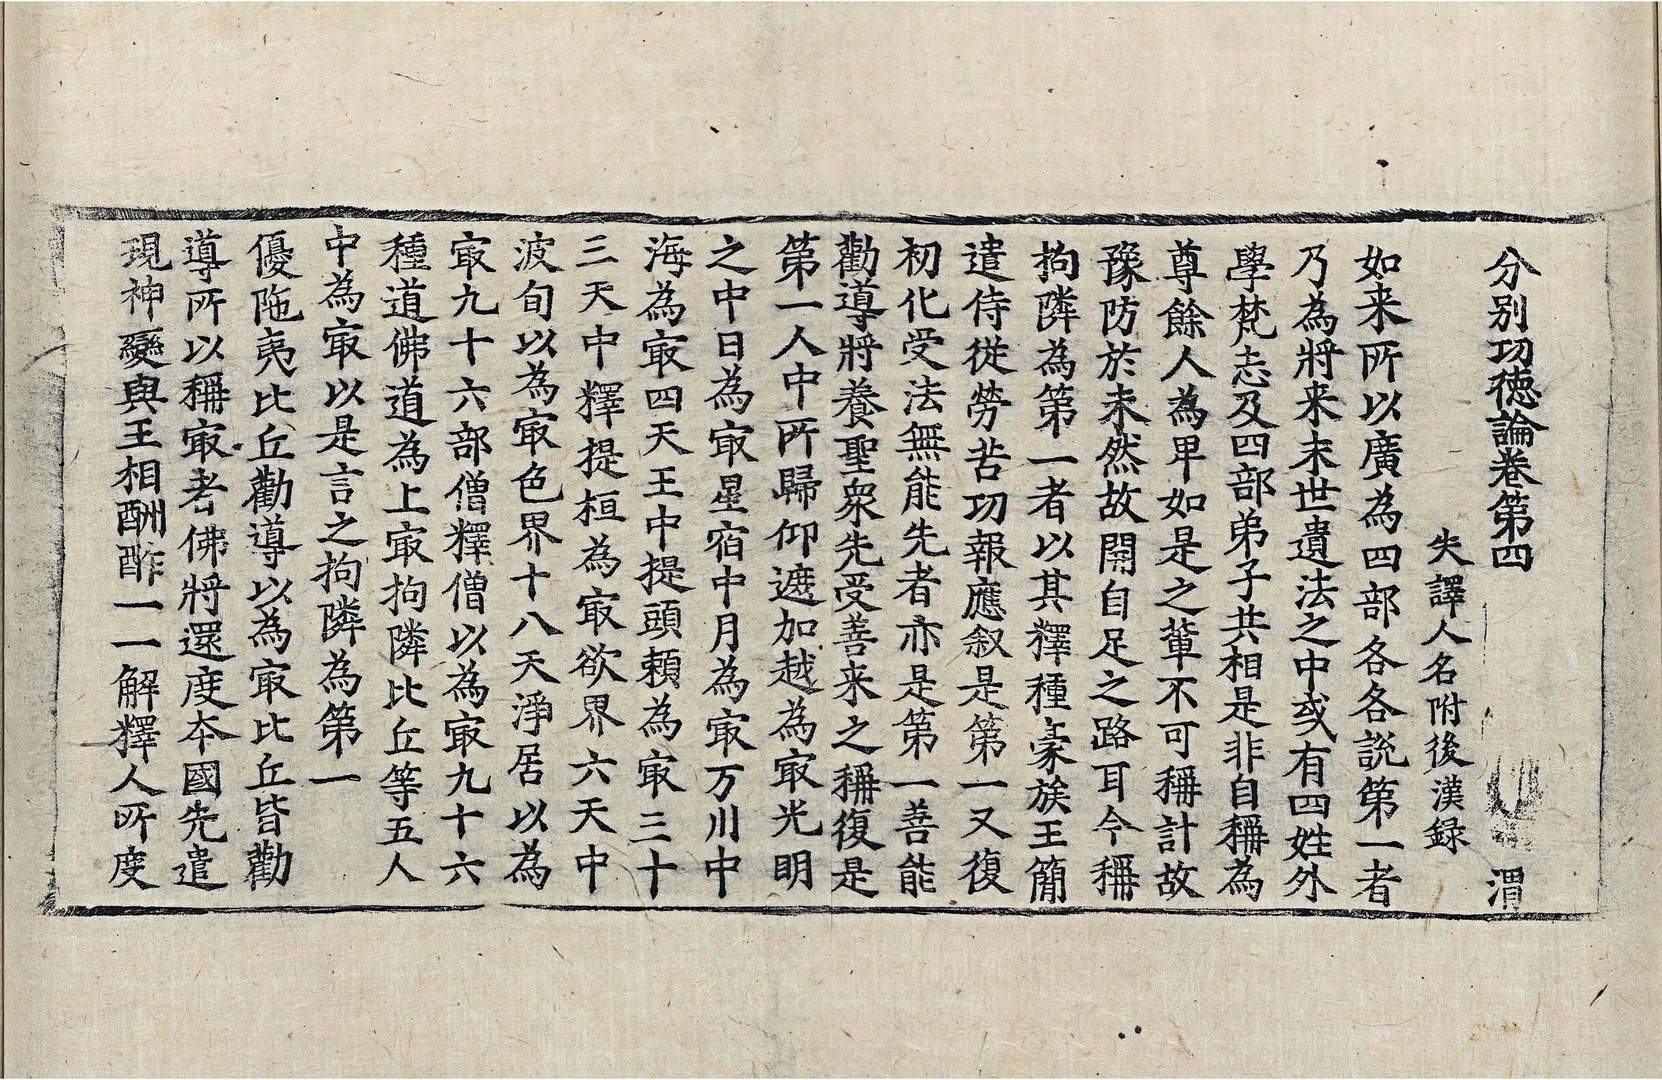 分別功徳論卷第四 渭
失譯人名附後漢録
如来所以廣為四部各各說第一者
乃為將来末世遺法之中或有四姓外
學梵志及四部弟子共相是非自稱為
尊餘人為卑如是之軰不可稱計故
豫防於未然故開自足之路耳今稱
拘隣為第一者以其釋種豪族王簡
遣侍從勞苦功報應叙是第一又復
初化受法無能先者亦是第一善能
勸導將養聖衆先受善来之稱復是
第一人中所歸仰遮加越為㝡光明
之中日為㝡星宿中月為㝡万川中
海為㝡四天王中提頭頼為㝡三十
三天中釋提桓為㝡欲界六天中
波旬以為㝡色界十八天淨居以為
㝡九十六部僧釋僧以為㝡九十六
種道佛道為上㝡拘隣比丘等五人
中為㝡以是言之拘隣為第一
優陁夷比丘勸導以為㝡比丘皆勸
導所以稱㝡者佛將還度夲國先遣
現神變與王相酬酢一一解釋人所度